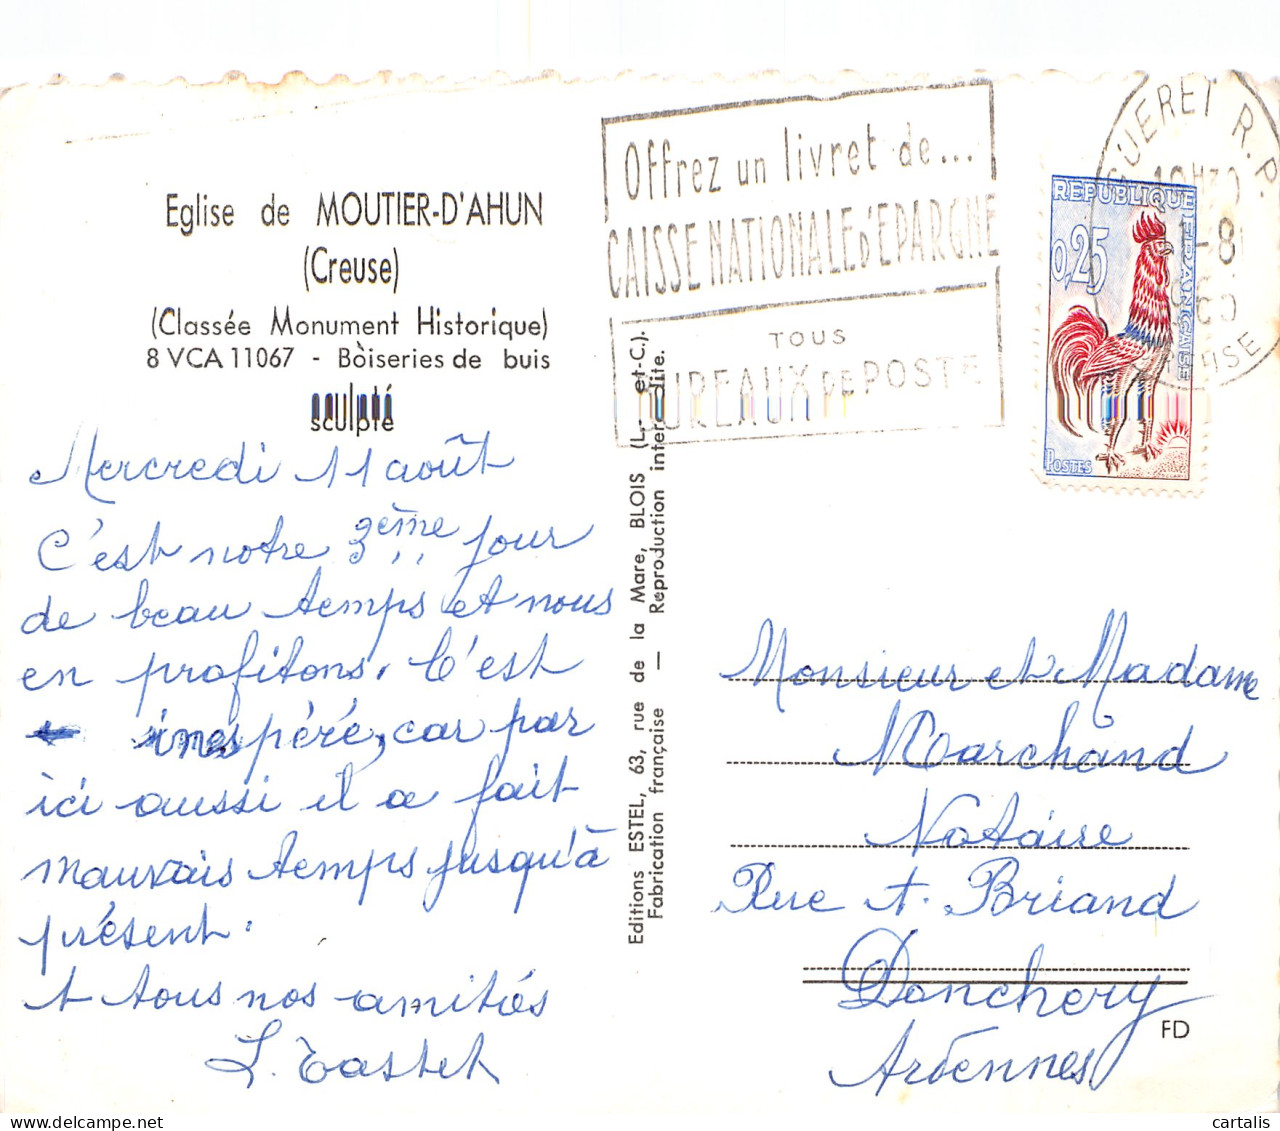 Eglise de MOUTIER-D'AHUN
(Creuse)
(Classée Monument Historique)
8 VCA 11067 - Boiseries de buis
sculpté
Mercredi 11 août
C'est notre 3ème jour
de beau temps et nous
en profitons. C'est
inespéré, car par
ici aussi il a fait
mauvais temps jusqu'à
présent.
A tous nos amitiés
Editions ESTEL, 63, rue de la Mare, BLOIS (L.-et-C.).
Fabrication française — Reproduction interdite.
Offrez un livret de...
CAISSE NATIONALE D'EPARGNE
TOUS
BUREAUX DE POSTE
GUERET R.P.
-8
CREUSE
REPUBLIQUE FRANÇAISE
0,25
POSTES
Monsieur et Madame
Marchand
Notaire
Rue A. Briand
Donchery
Ardennes
FD
cartalis